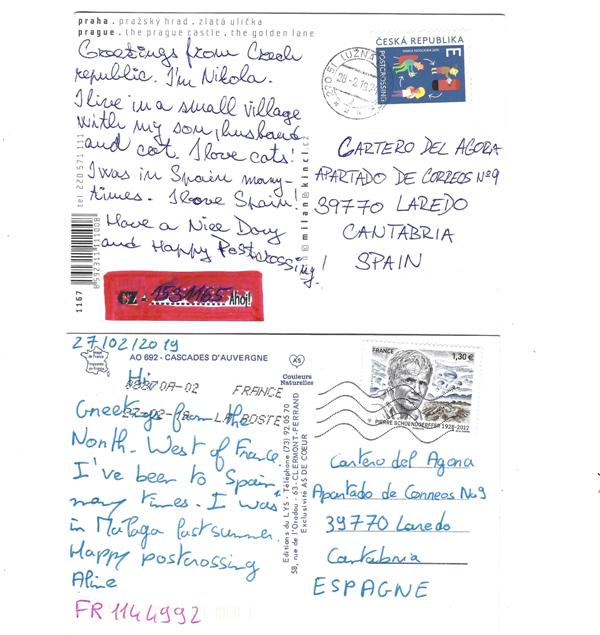 praha . pražský hrad . zlatá ulička
prague . the prague castle . the golden lane
Greetings from Czech
republic. I'm Nikola.
I live in a small village
with my son, husband
and cat. I love cats!
I was in Spain many-
times. I love Spain!
Have a Nice Day
and Happy Postcrossing!
tel 220 571 111
milan kincl.cz
8592311111008
1167
CZ - 1531165 Ahoj!
ČESKÁ REPUBLIKA
E
POSTCROSSING
270 51 LUŽNÁ
CARTERO DEL AGORA
APARTADO DE CORREOS Nº9
39770 LAREDO
CANTABRIA
SPAIN
27/02/2019
AO 692 - CASCADES D'AUVERGNE
Couleurs
Naturelles
Hi
09270A-02 FRANCE
LA POSTE
Greetings from the
North-West of France.
I've been to Spain
many times. I was
in Malaga last summer.
Happy postcrossing
Aline
FR 1144992
Editions du LYS - Téléphone (73) 92 05 70
58, rue de l'Oradou - 63 - CLERMONT-FERRAND
Exclusivité AS DE COEUR
FRANCE 1,30 €
PIERRE SCHOENDOERFFER 1928-2012
Cartero del Agora
Apartado de Correos Nº9
39770 Laredo
Cantabria
ESPAGNE